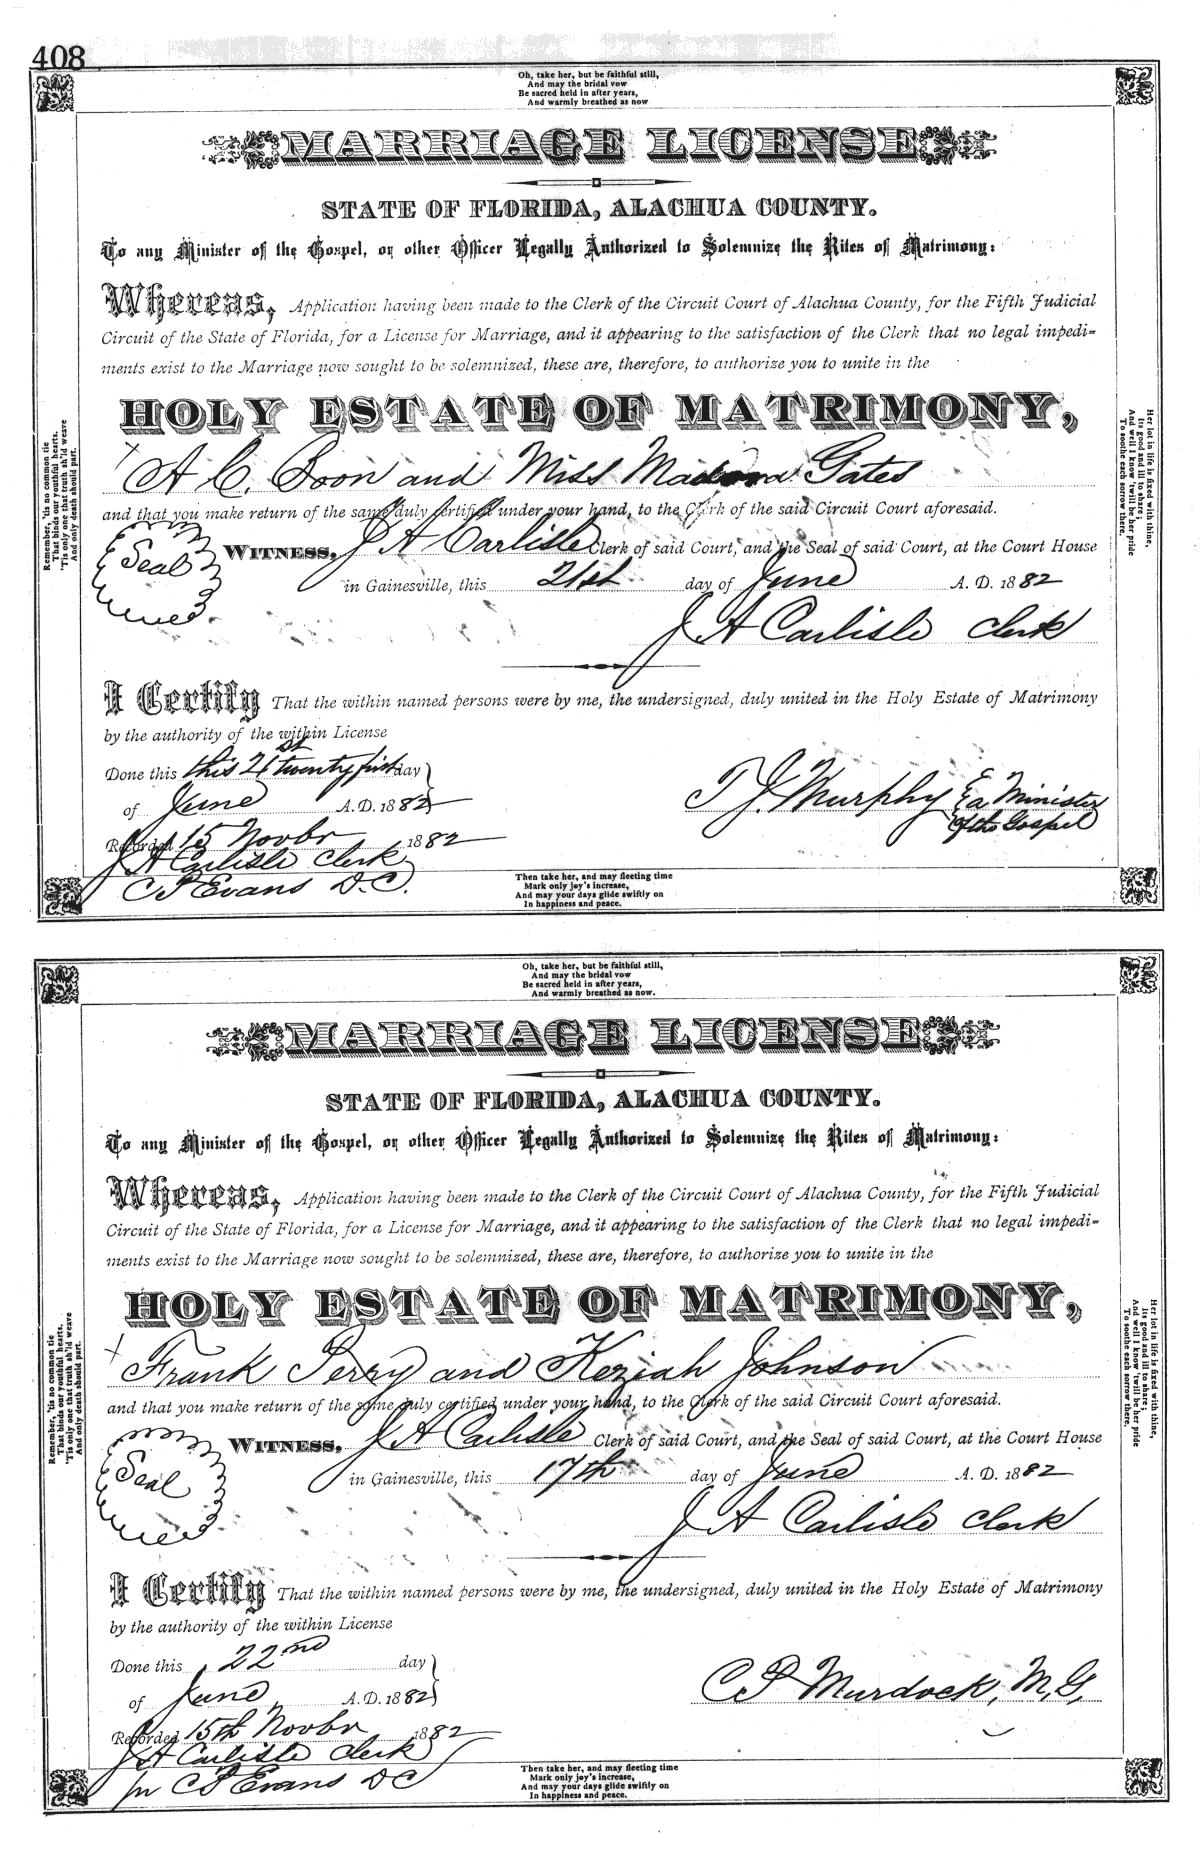 408
Oh, take her, but be faithful still,
And may the bridal vow
Be sacred held in after years,
And warmly breathed as now
MARRIAGE LICENSE
STATE OF FLORIDA, ALACHUA COUNTY.
To any Minister of the Gospel, or other Officer Legally Authorized to Solemnize the Rites of Matrimony:
Whereas, Application having been made to the Clerk of the Circuit Court of Alachua County, for the Fifth Judicial
Circuit of the State of Florida, for a License for Marriage, and it appearing to the satisfaction of the Clerk that no legal impedi-
ments exist to the Marriage now sought to be solemnized, these are, therefore, to authorize you to unite in the
HOLY ESTATE OF MATRIMONY,
A C. Boon and Miss Gates
and that you make return of the same duly certified under your hand, to the Clerk of the said Circuit Court aforesaid.
Seal
WITNESS, J A Carlisle Clerk of said Court, and the Seal of said Court, at the Court House
in Gainesville, this 21st day of June A. D. 1882
J A Carlisle Clerk
I Certify That the within named persons were by me, the undersigned, duly united in the Holy Estate of Matrimony
by the authority of the within License
Done this this 21st twenty first day
of June A.D. 1882
T J. Murphy a Minister
of the Gospel
Recorded 15 Novbr 1882
J A Carlisle Clerk
C P Evans D.C.
Then take her, and may fleeting time
Mark only joy's increase,
And may your days glide swiftly on
In happiness and peace.
Remember, 'tis no common tie
That binds our youthful hearts,
'Tis only one that truth sh'ld weave
And only death should part.
Her lot in life is fixed with thine,
Its good and ill to share;
And well I know 'twill be her pride
To soothe each sorrow there.
Oh, take her, but be faithful still,
And may the bridal vow
Be sacred held in after years,
And warmly breathed as now.
MARRIAGE LICENSE
STATE OF FLORIDA, ALACHUA COUNTY.
To any Minister of the Gospel, or other Officer Legally Authorized to Solemnize the Rites of Matrimony:
Whereas, Application having been made to the Clerk of the Circuit Court of Alachua County, for the Fifth Judicial
Circuit of the State of Florida, for a License for Marriage, and it appearing to the satisfaction of the Clerk that no legal impedi-
ments exist to the Marriage now sought to be solemnized, these are, therefore, to authorize you to unite in the
HOLY ESTATE OF MATRIMONY,
Frank Perry and Keziah Johnson
and that you make return of the same duly certified under your hand, to the Clerk of the said Circuit Court aforesaid.
Seal
WITNESS, J A Carlisle Clerk of said Court, and the Seal of said Court, at the Court House
in Gainesville, this 17th day of June A. D. 1882
J A Carlisle Clerk
I Certify That the within named persons were by me, the undersigned, duly united in the Holy Estate of Matrimony
by the authority of the within License
Done this 22nd day
of June A.D. 1882
C P Murdock, M,G,
Recorded 15th Novbr 1882
J A Carlisle Clerk
pr C P Evans D C
Then take her, and may fleeting time
Mark only joy's increase,
And may your days glide swiftly on
In happiness and peace.
Remember, 'tis no common tie
That binds our youthful hearts,
'Tis only one that truth sh'ld weave
And only death should part.
Her lot in life is fixed with thine,
Its good and ill to share;
And well I know 'twill be her pride
To soothe each sorrow there.